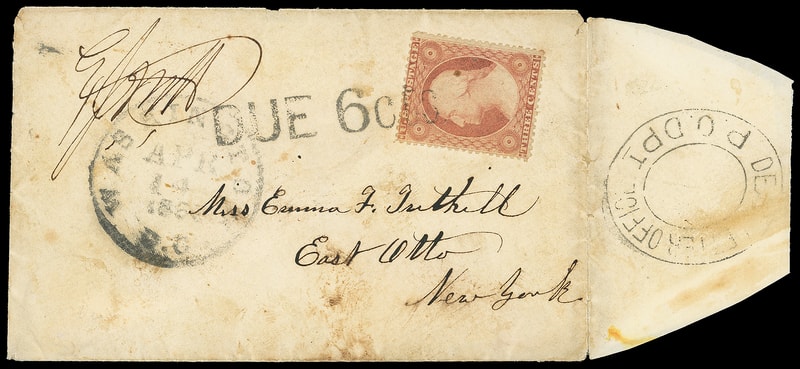 DUE 6cTS
U.S. POSTAGE
THREE CENTS
WASHINGTON
APR
14
186
D.C.
Miss Emma F. Tuthill
East Otto
New York
DEAD LETTER OFFICE
P.O.DPT.